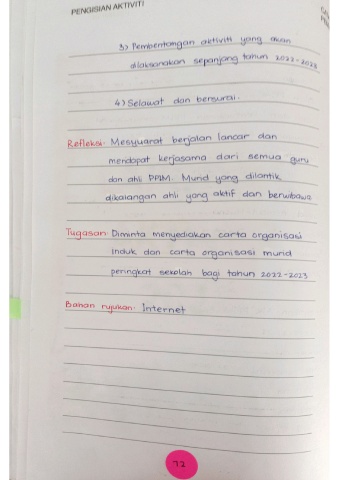 PENGISIAN AKTIVITI
3) Pembentangan aktiviti yang akan
dilaksanakan sepanjang tahun 2022-2023
4) Selawat dan bersurai.
Refleksi: Mesyuarat berjalan lancar dan
mendapat kerjasama dari semua guru
dan ahli PPIM. Murid yang dilantik
dikalangan ahli yang aktif dan berwibawa
Tugasan: Diminta menyediakan carta organisasi
induk dan carta organisasi murid
peringkat sekolah bagi tahun 2022-2023
Bahan rujukan: Internet
72